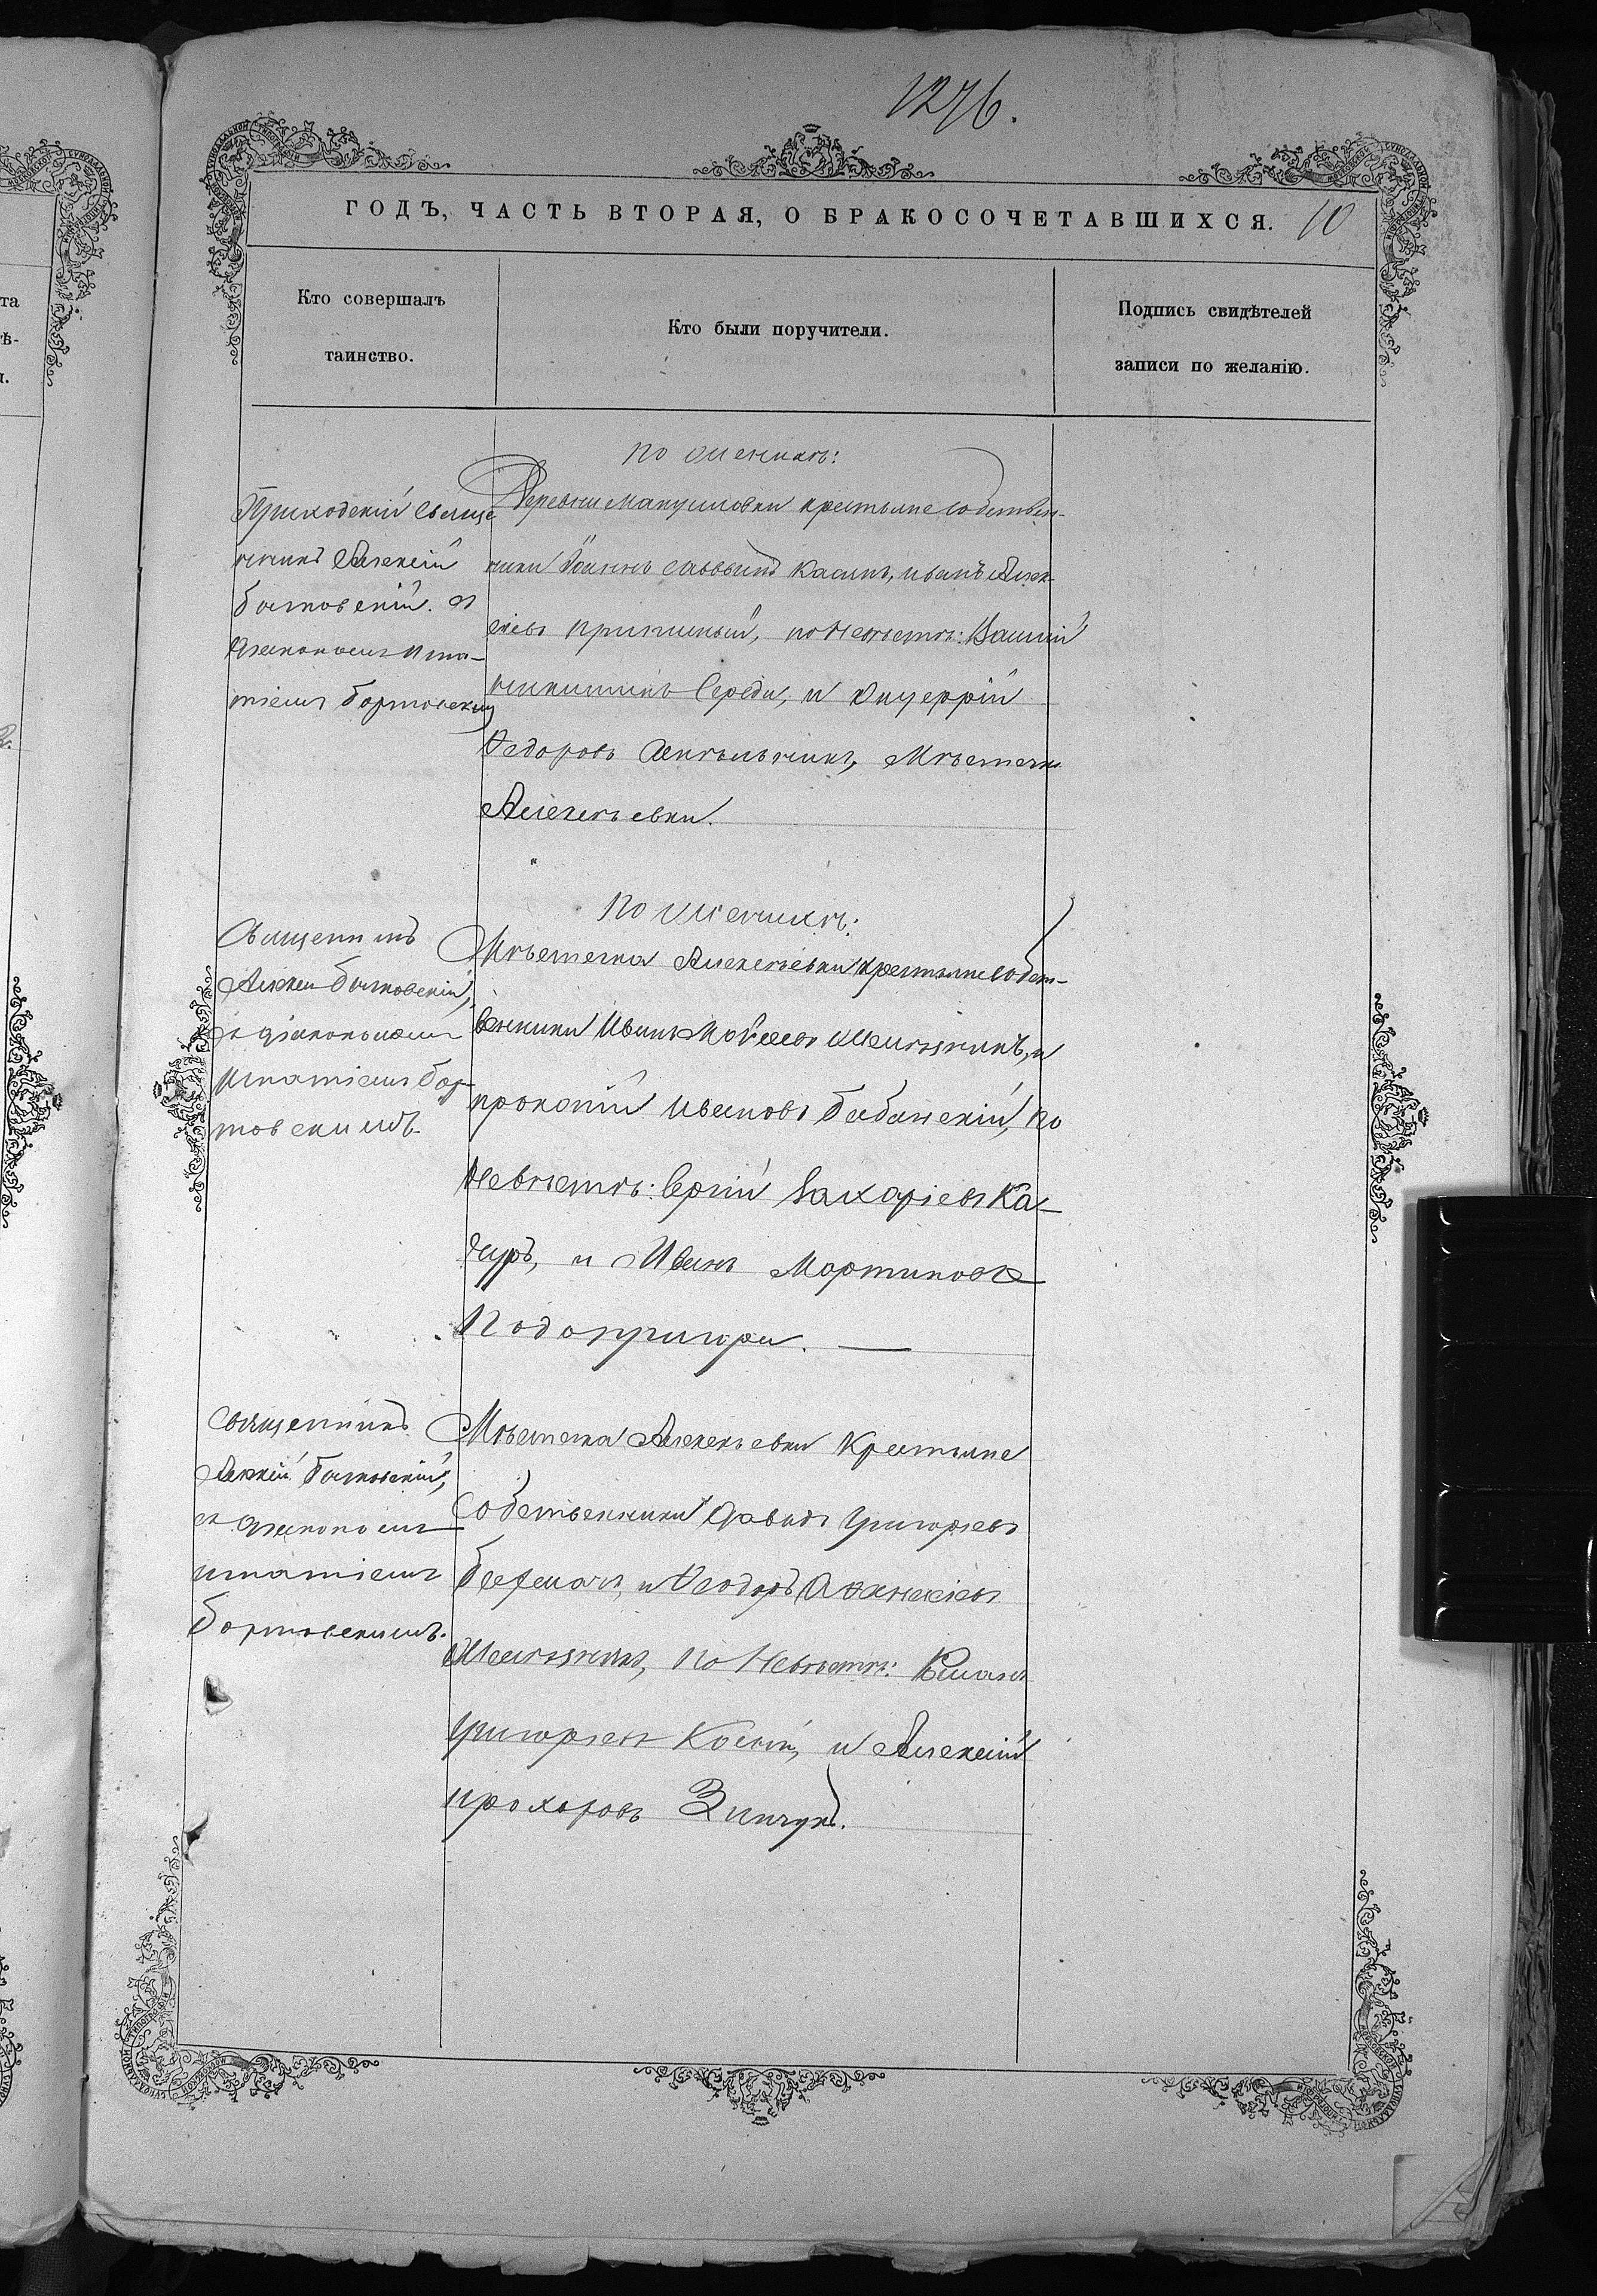 1276.
ГОДЪ, ЧАСТЬ ВТОРАЯ, О БРАКОСОЧЕТАВШИХСЯ. 10
Кто совершалъ
таинство.
Кто были поручители.
Подпись свидѣтелей
записи по желанію.
Приходскій Свяще
нникъ Алексій
Бычковскій. съ
Діакономъ Игна-
тіемъ Бортовским
По Женихѣ:
Деревни крестьяне собствен-
ники Іоаннъ Саввинъ Касапъ, иванъ Алек-
сіевъ по Невѣстѣ: Василій
Середа, и
Федоровъ Мѣстечка
Алексѣевки.
Священикъ
Алексій Бычковскій,
съ діакономъ
Игнатіемъ Бор-
товскимъ.
По Женихѣ:
Мѣстечка Алексѣевки крестьяне собст-
венники Иванъ Мойсеевъ Мельникъ, и
прокопій ивановъ Бабанскій, по
Невѣстѣ: Сергій Захаріевъ Ка-
чуръ, и Иванъ Мартиновъ
Подопригора.
Священникъ
Алексій Бычковскій,
съ Діакономъ
игнатіемъ
Бортовскимъ.
Мѣстечка Алексѣевки Крестьяне
Собственники Давидъ Григорьевъ
и Феодоръ
Мельникъ, по Невѣстѣ: Романъ
Григорьевъ и Алексій
прохоровъ Зинчукъ.